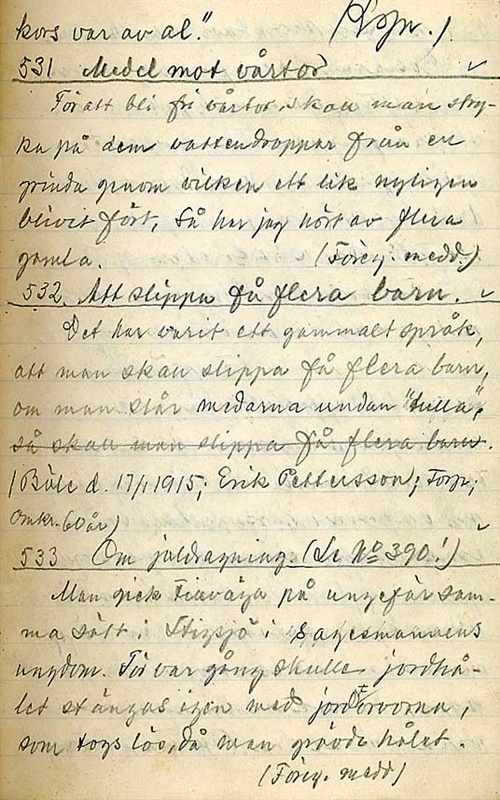 kors var av al." (Kopr.)
531 Medel mot vårtor
För att bli fri vårtor, skall man stry-
ka på dem vattendroppar från en
grinda genom vilken ett lik nyligen
blivit fört, Så har jag hört av flera
gamla. (Föreg. medd.)
532. Att slippa få flera barn.
Det har varit ett gammalt språk,
att man skall slippa få flera barn,
om man slår medarna undan "tulla",
så skall man slippa få flera barn.
(Böle d. 17/1 1915; Erik Pettersson, Torp,
Omkr. 60 år)
533 Om jaldragning. (Se No 390!)
Man gick tillväga på ungefär sam-
ma sätt i Stigsjö i sagesmannens
ungdom. För var gång skulle jordhå-
let stängas igen med jordtorvorna,
som togs lös, då man grävde hålet.
(Föreg. medd)